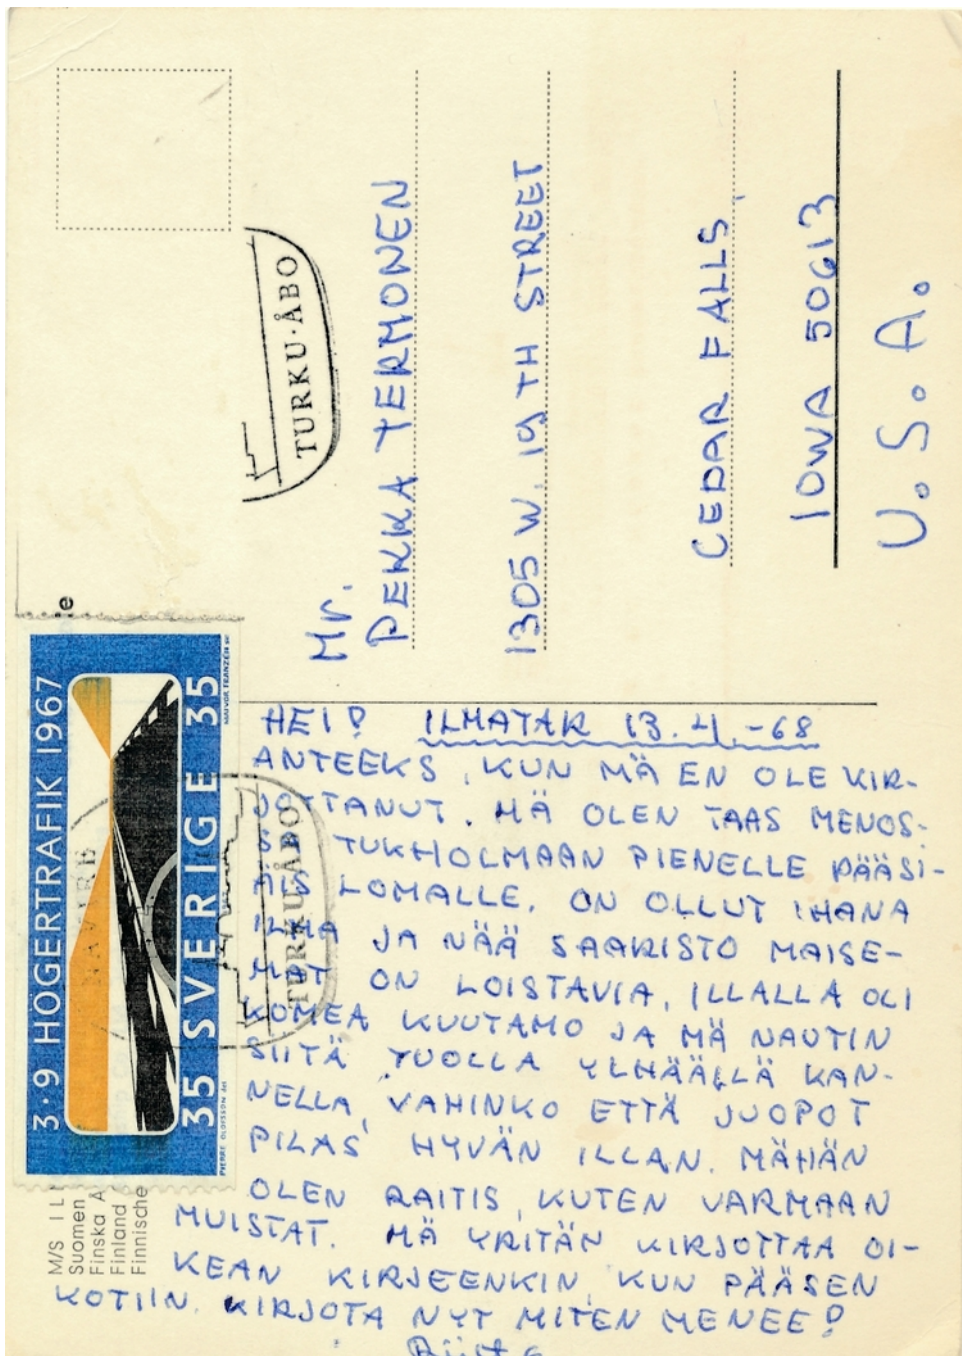 TURKU·ÅBO
Mr.
PEKKA TERMONEN
1305 W. 19TH STREET
CEDAR FALLS,
IOWA 50613
U.S.A.
3·9 HÖGERTRAFIK 1967
35 SVERIGE 35
PIERRE OLOFSSON del
NAVIRE
TURKU·ÅBO
M/S IL
Suomen
Finska Å
Finland
Finnische
e
HEI! ILMATAR 13.4.-68
ANTEEKS, KUN MÄ EN OLE KIR-
JOTTANUT. MÄ OLEN TAAS MENOS-
SA TUKHOLMAAN PIENELLE PÄÄSI-
ÄIS LOMALLE. ON OLLUT IHANA
ILMA JA NÄÄ SAARISTO MAISE-
MAT ON LOISTAVIA, ILLALLA OLI
KOMEA KUUTAMO JA MÄ NAUTIN
SIITÄ TUOLLA YLHÄÄLLÄ KAN-
NELLA, VAHINKO ETTÄ JUOPOT
PILAS HYVÄN ILLAN. MÄHÄN
OLEN RAITIS, KUTEN VARMAAN
MUISTAT. MÄ YRITÄN KIRJOTTAA OI-
KEAN KIRJEENKIN, KUN PÄÄSEN
KOTIIN. KIRJOTA NYT MITEN MENEE!